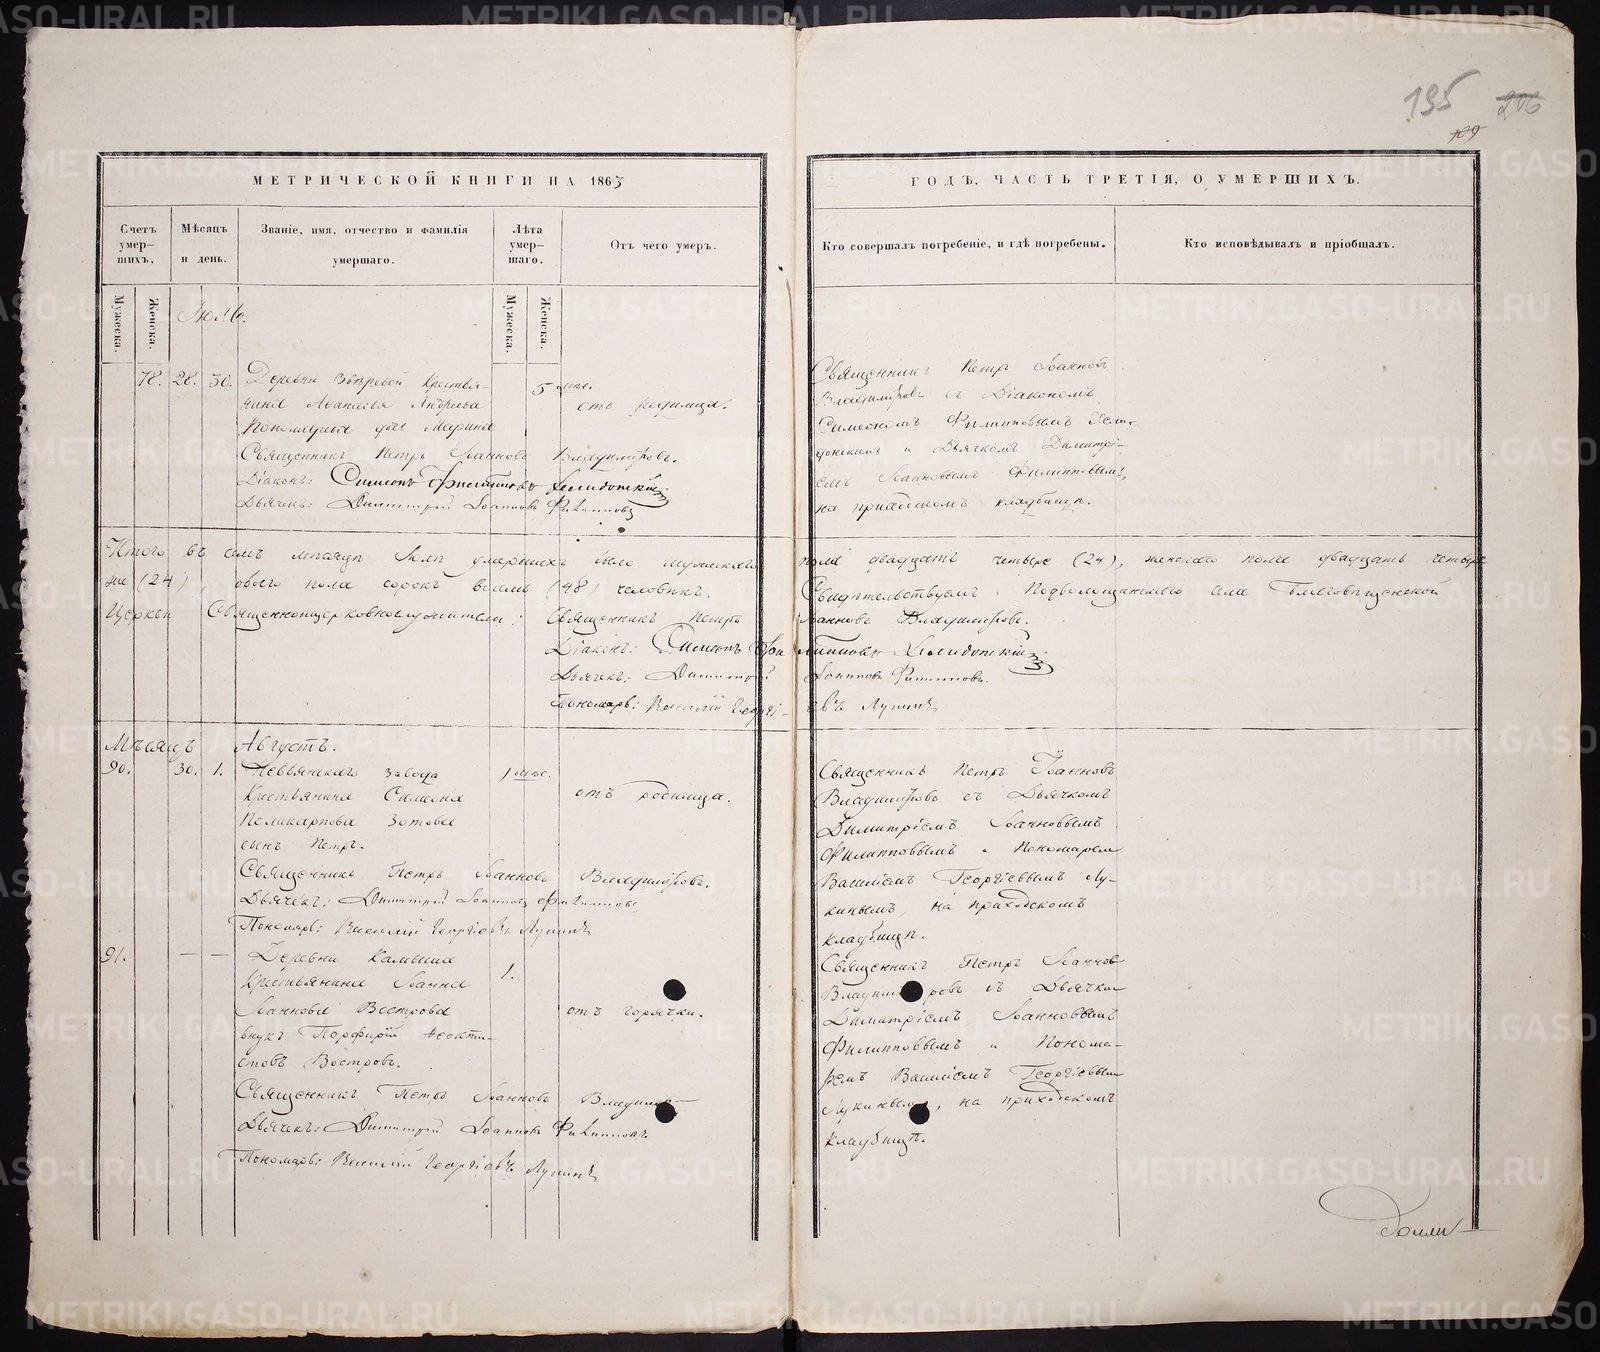 195 206
109
МЕТРИЧЕСКОЙ КНИГИ НА 1863
ГОДЪ, ЧАСТЬ ТРЕТІЯ, О УМЕРШИХЪ.
Счетъ умер-шихъ.
Мѣсяцъ и день.
Званіе, имя, отчество и фамилія умершаго.
Лѣта умер-шаго.
Отъ чего умеръ.
Кто совершалъ погребеніе, и гдѣ погребены.
Кто исповѣдывалъ и пріобщалъ.
Мужеска.
Женска.
Мужеска.
Женска.
Іюль.
78. 28. 30. Деревни Звѣревой Крестья-
нина Аѳанасья Андреева
Пономарева дочь Марина
5 мѣс.
отъ родимца.
Священникъ Петръ Іоанновъ Владиміровъ.
Діаконъ: Симеонъ Филипповъ
Дьячекъ: Димитрій Іоанновъ Филипповъ
Священникъ Петръ Іоанновъ
Владиміровъ съ Діакономъ
Симеономъ Филипповымъ
и Дьячкомъ Димитрі-
емъ Іоанновымъ Филипповымъ,
на приходскомъ кладбищѣ.
Итого въ семъ мѣсяцѣ Іюлѣ умершихъ было мужескаго пола двадцать четыре (24), женскаго пола двадцать четыре
же (24), обоего пола сорокъ восемь (48) человѣкъ. Свидѣтельствуемъ, села Благовѣщенской
Церкви Священноцерковнослужители: Священникъ Петръ Іоанновъ Владиміровъ.
Діаконъ: Симеонъ Филипповъ
Дьячекъ: Димитрій Іоанновъ Филипповъ.
Пономарь: Василій Георгіевъ Лукинъ
Мѣсяцъ Августъ.
90. 30. 1. Невьянскаго завода
Крестьянина Симеона
Поликарпова Зотова
сынъ Петръ.
1 мѣс.
отъ родимца.
Священникъ Петръ Іоанновъ Владиміровъ.
Дьячекъ: Димитрій Іоанновъ Филипповъ
Пономарь: Василій Георгіевъ Лукинъ
Священникъ Петръ Іоанновъ
Владиміровъ съ Дьячкомъ
Димитріемъ Іоанновымъ
Филипповымъ и Пономаремъ
Василіемъ Георгіевымъ Лу-
кинымъ, на приходскомъ
кладбищѣ.
91. — — Деревни
Крестьянина Іоанна
Іоаннова Вострова
внукъ Порфирій Ѳеокти-
стовъ Востровъ.
1.
отъ горячки.
Священникъ Петръ Іоанновъ Владиміровъ
Дьячекъ: Димитрій Іоанновъ Филипповъ
Пономарь: Василій Георгіевъ Лукинъ
Священникъ Петръ Іоаннов
Владиміровъ съ Дьячко
Димитріемъ Іоанновымъ
Филипповымъ и Понома-
ремъ Василіемъ Георгіевым
Лукинымъ, на приходскомъ
кладбищѣ.
METRIKI.GASO-URAL.RU